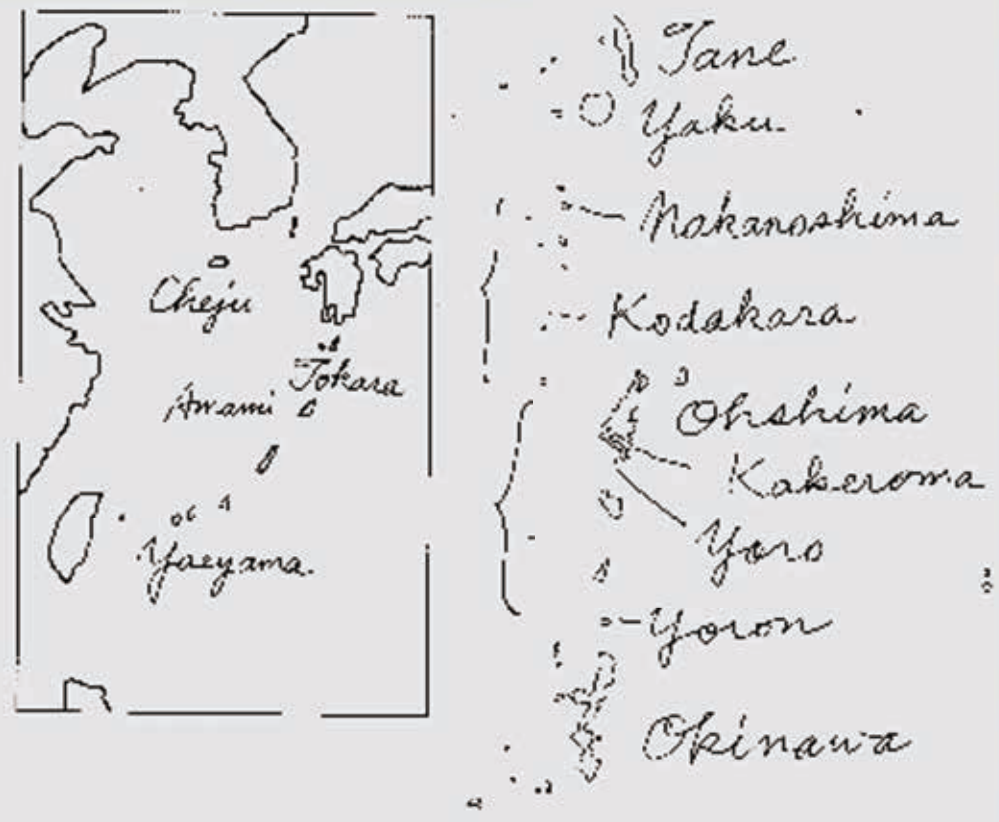 Cheju
Tokara
Amami
Yaeyama
Tane
Yaku
Nakanoshima
Kodakara
Ohshima
Kakeroma
Yoro
Yoron
Okinawa